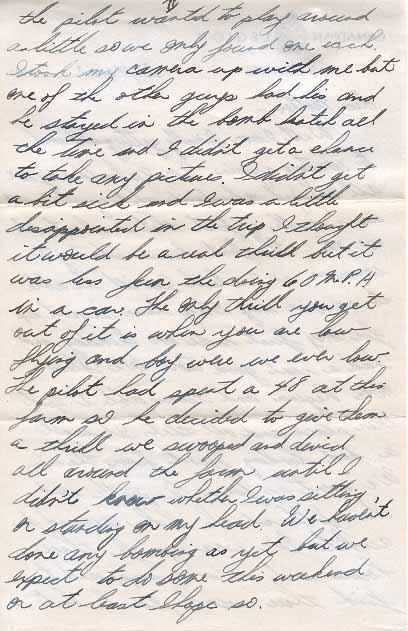 IV
the pilot wanted to play around
a little so we only found one each.
I took my camera up with me but
one of the other guys had his and
he stayed in the bomb hatch all
the time and I didn't get a chance
to take any pictures. I didn't get
a bit sick and I was a little
disappointed in the trip I thought
it would be a real thrill but it
was less fun the doing 60 M.P.H
in a car. The only thrill you get
out of it is when you are low
flying and boy were we ever low
The pilot had spent a 48 at this
farm so he decided to give them
a thrill we swooped and dived
all around the farm until I
didn't know whether I was sitting
or standing on my head. We haven't
done any bombing as yet but we
expect to do some this weekend
or at least I hope so.